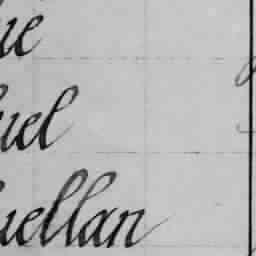 ue
uel
uellan